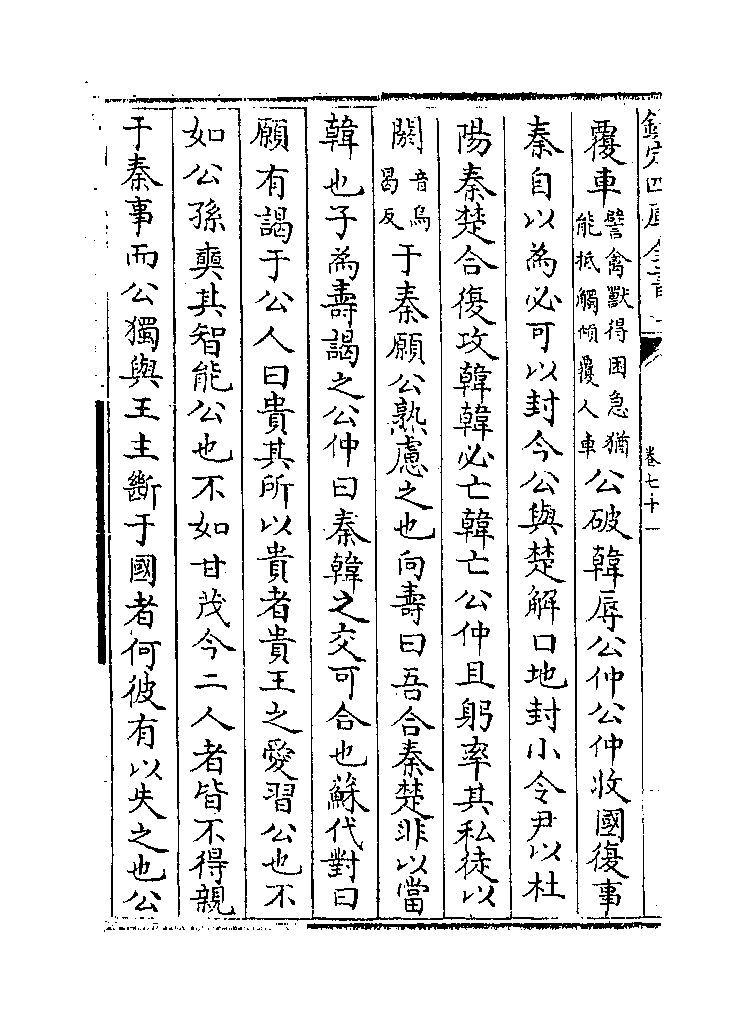 欽定四庫全書
卷七十一
覆車譬禽獸得困急猶能抵觸傾覆人車公破韓辱公仲公仲收國復事
秦自以為必可以封今公與楚解口地封小令尹以杜
陽秦楚合復攻韓韓必亡韓亡公仲且躬率其私徒以
閼音烏曷反于秦願公熟慮之也向壽曰吾合秦楚非以當
韓也子為壽謁之公仲曰秦韓之交可合也蘇代對曰
願有謁于公人曰貴其所以貴者貴王之愛習公也不
如公孫奭其智能公也不如甘茂今二人者皆不得親
于秦事而公獨與王主斷于國者何彼有以失之也公